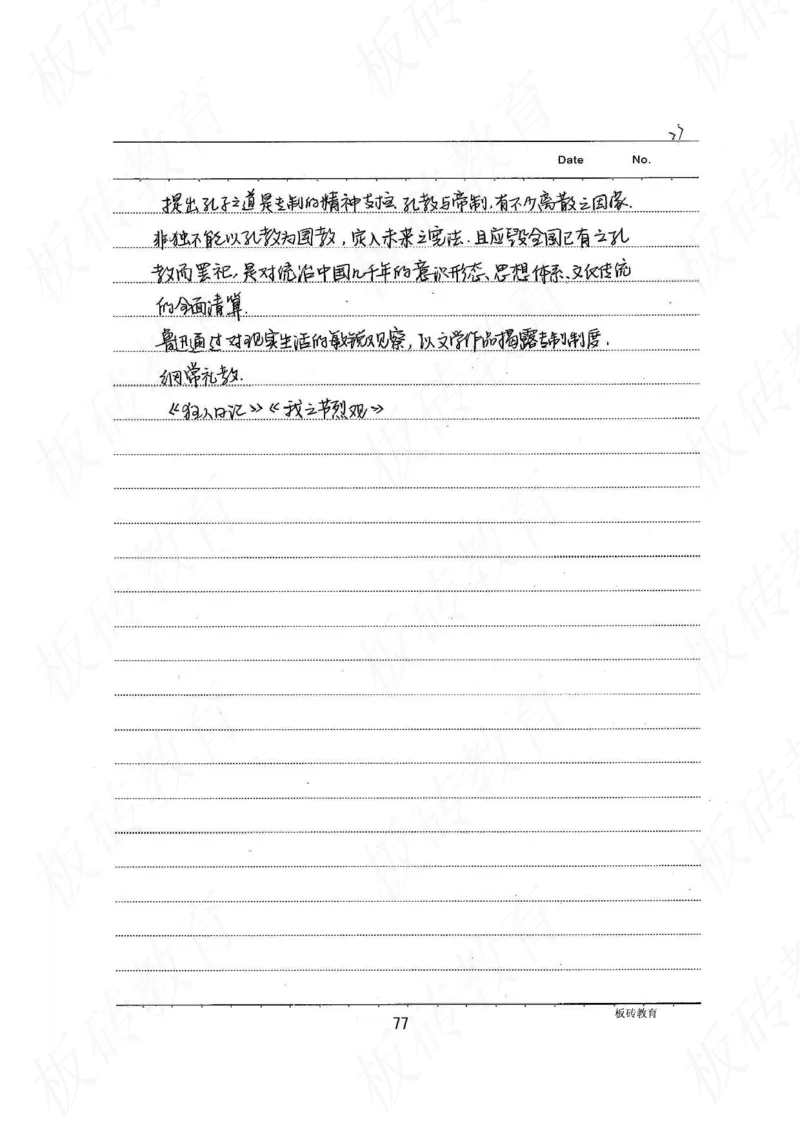 23
Date No.
提出孔子之道是专制的精神支柱.孔教与帝制,有不少离散之因缘.
非独不能以孔教为国教,定入未来之宪法.且应毁全国已有之孔
教而罢祀,是对统治中国几千年的意识形态、思想体系、文化传统
的全面清算.
鲁迅通过对现实生活的敏锐观察,以文学作品揭露专制制度.
纲常礼教.
《狂人日记》《我之节烈观》
77
板砖教育